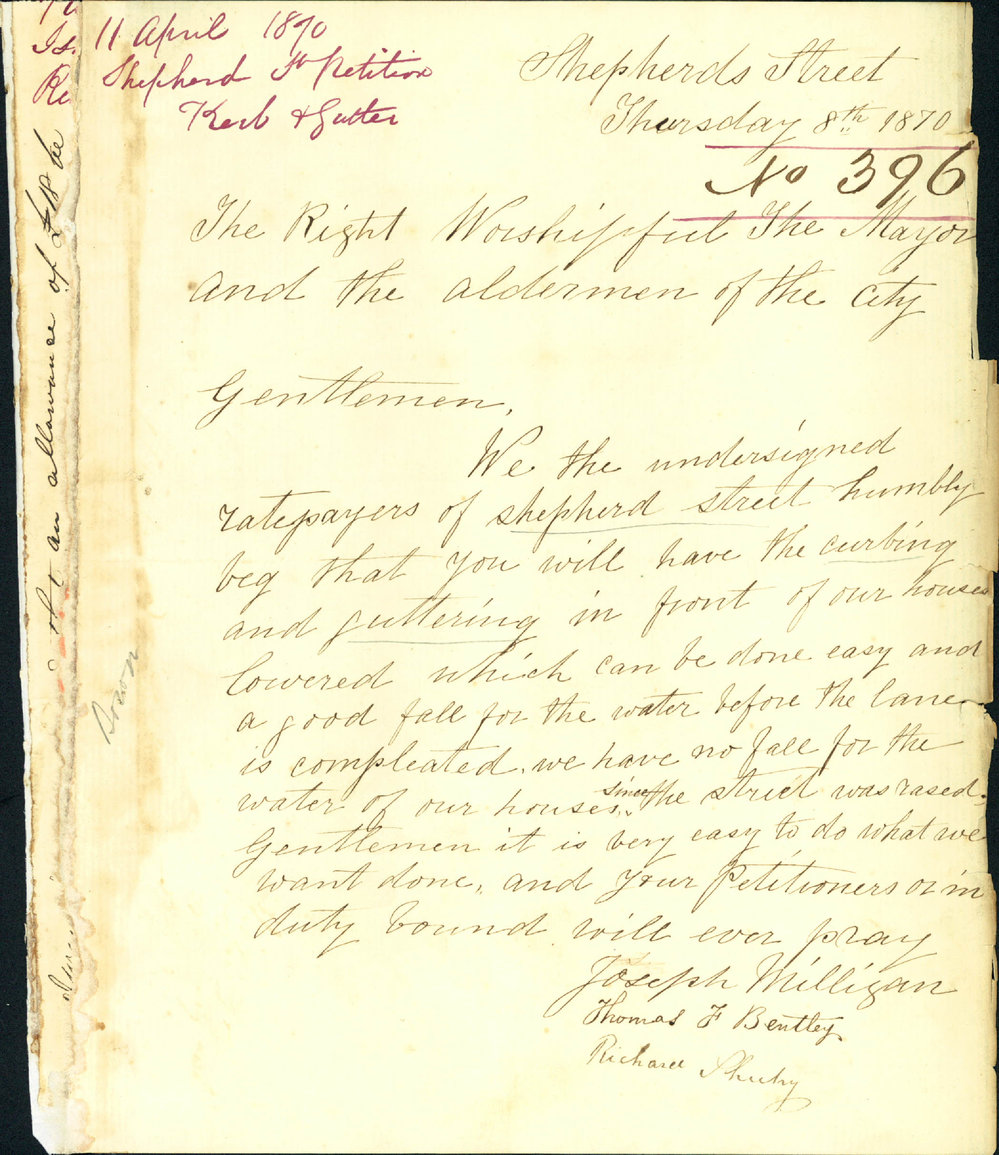 11 April 1870
Shepherd St Petition
Kerb & Gutter
Shepherds Street
Thursday 8th 1870
No 396
The Right Worshipful The Mayor
and the aldermen of the city
Gentlemen,
We the undersigned
ratepayers of shepherd street humbly
beg that you will have the curbing
and guttering in front of our houses
lowered which can be done easy and
a good fall for the water before the lane
is compleated. we have no fall for the
water of our houses since the street was rased.
Gentlemen it is very easy to do what we
want done, and your Petitioners as in
duty bound will ever pray
Joseph Milligan
Thomas F Bentley
Richard
an allowance of £18 be